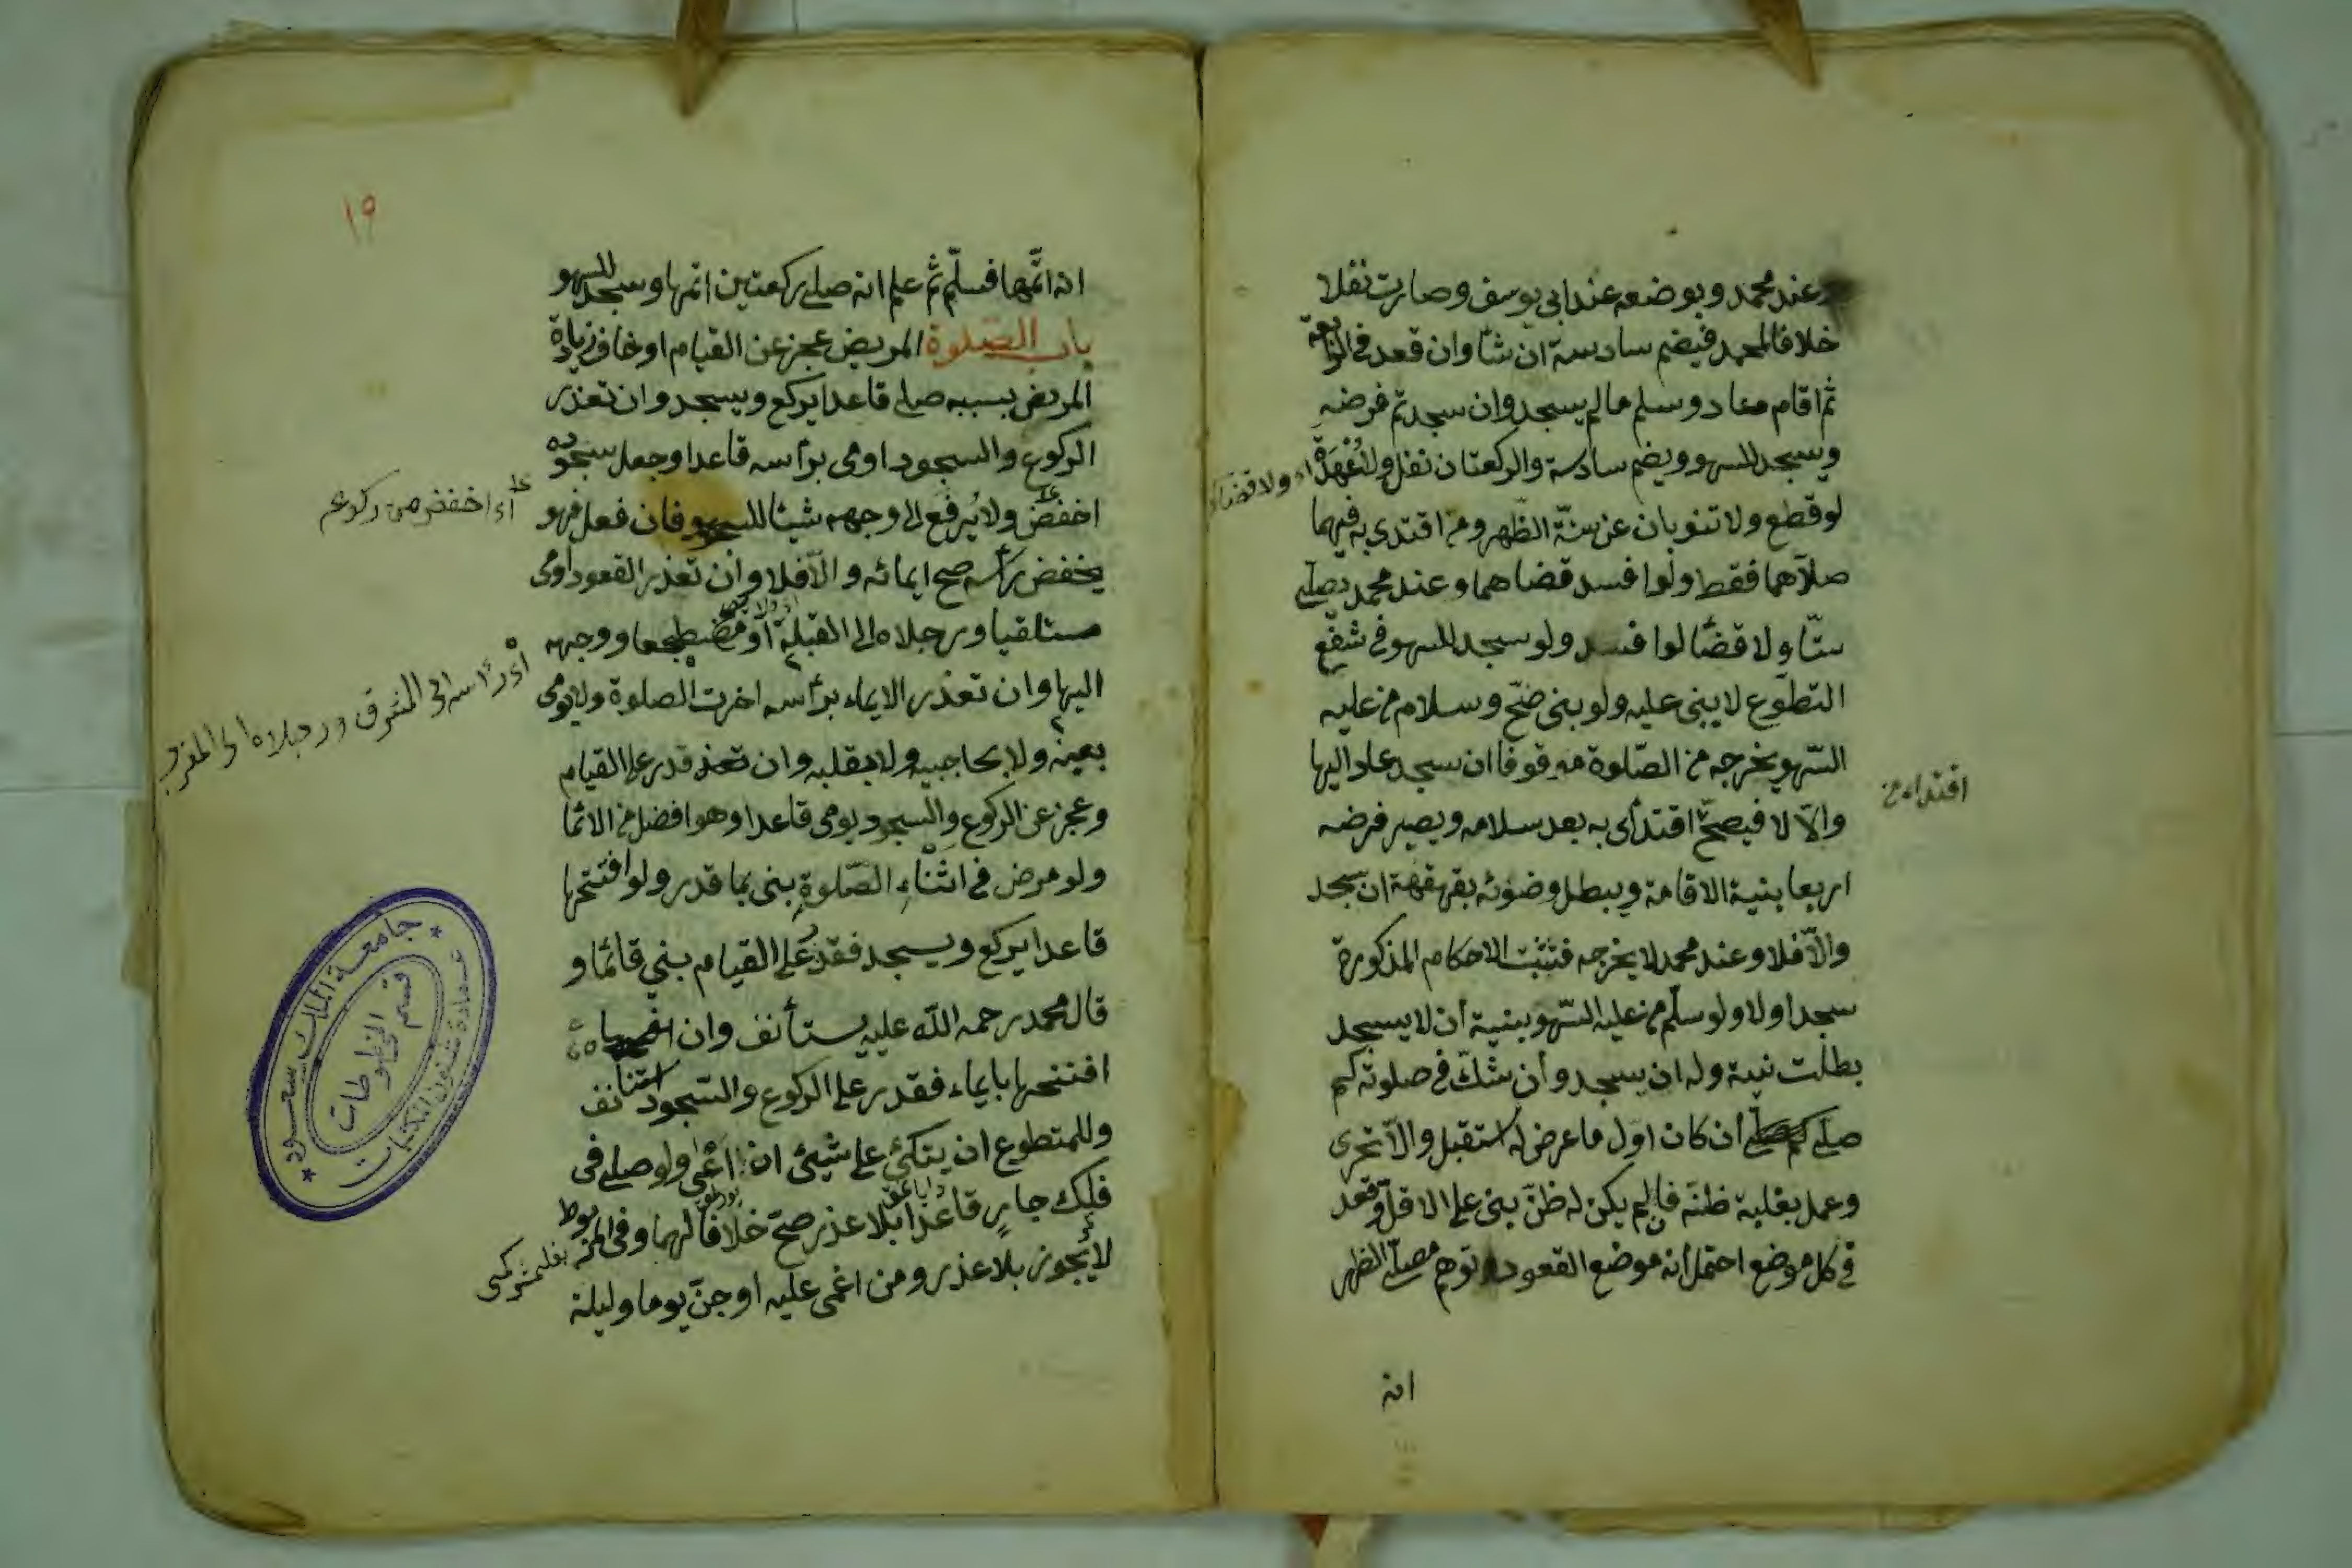 عند محمد وبوضعه عند ابى يوسف وصارت نفلا
خلافا لمحمد فيضم سادسة ان شآ وان قعد فى الرابعة
ثم اقام معاد وسلم مالم يسجد وان سجد تم فرضه
ويسجد للسهو ويضم سادسة والركعتان نفل ولا عهدة
اى ولا قضاء
لو قطع ولا تنوبان عن سنّة الظّهر ومن اقتدى به فيهما
صلاّهما فقط ولوا فسد قضاهما وعند محمد يصلى
ستّا ولا قضآ لوا فسد ولو سجد للسهو فى شفع
التطوّع لا يبنى عليه ولو بنى صحّ وسلام من عليه
السّهو يخرجه من الصّلوة موقوفا ان سجد عاد اليها
والاّ لا فيصحّ اقتدأى به بعد سلامه ويصير فرضه
اقتداء من
اربعا بنية الاقامة ويبطل وضوئه بقهقهة ان سجد
والاّ فلا وعند محمد لا يخرجه فتثبت الاحكام المذكورة
سجد اولا ولو سلّم من عليه السّهو بنية أن لا يسجد
بطلت نيته وله ان يسجد وأن شكّ فى صلوته كم
صلى أن كان اوّل ما عرض له استقبل والاّ تحرى
وعمل بغلبة ظنّه فان لم يكن له ظنّ بنى على الاقلّ وقعد
فى كل موضع احتمل أنه موضع القعود توهم مصلّى الظهر
انه
١٩
انه اتمّها فسلّم ثمّ علم انه صلى ركعتين اتمها وسجد للسهو
باب الصّلوة المريض عجز عن القيام او خاف زيادة
المرض بسببه صلى قاعدا يركع ويسجد وان تعذر
الركوع والسجود اومى برأسه قاعدا وجعل سجوده
اخفض ولا يرفع الى وجهه شيئا للسجود فان فعل فهو
أى اخفض من ركوعه
يخفض رأسه صح ايمائه والاّ فلا وأن تعذر القعود اومى
مستلقيا ورجلاه الى القبلة أو مضطجعا ووجهه
أى رأسه الى المشرق ورجلاه الى المغرب
اليها وان تعذر الايماء برأسه اخرت الصلوة ولا يومى
بعينه ولا بحاجبيه ولا بقلبه وان تعذ قدر على القيام
وعجز عن الركوع والسجود يومى قاعدا وهو افضل من الائما
ولو مرض فى اثناء الصّلوة بنى بما قدر ولو افتتحها
قاعدا يركع ويسجد فقدر على القيام بنى قائما و
قال محمد رحمه الله عليه يستأنف وان
افتتحها بايماء فقدر على الركوع والسّجود استأنف
وللمتطوع ان يتكئ على شيئ ان اعى ولو صلى فى
فلك جار قاعدا بلا عذر صح خلافا لهما وفى المربوط
لا يجوز بلا عذر ومن اغمى عليه او جنّ يوما وليلة
جامعة الملك سعود
عمادة شئون المكتبات
قسم المخطوطات